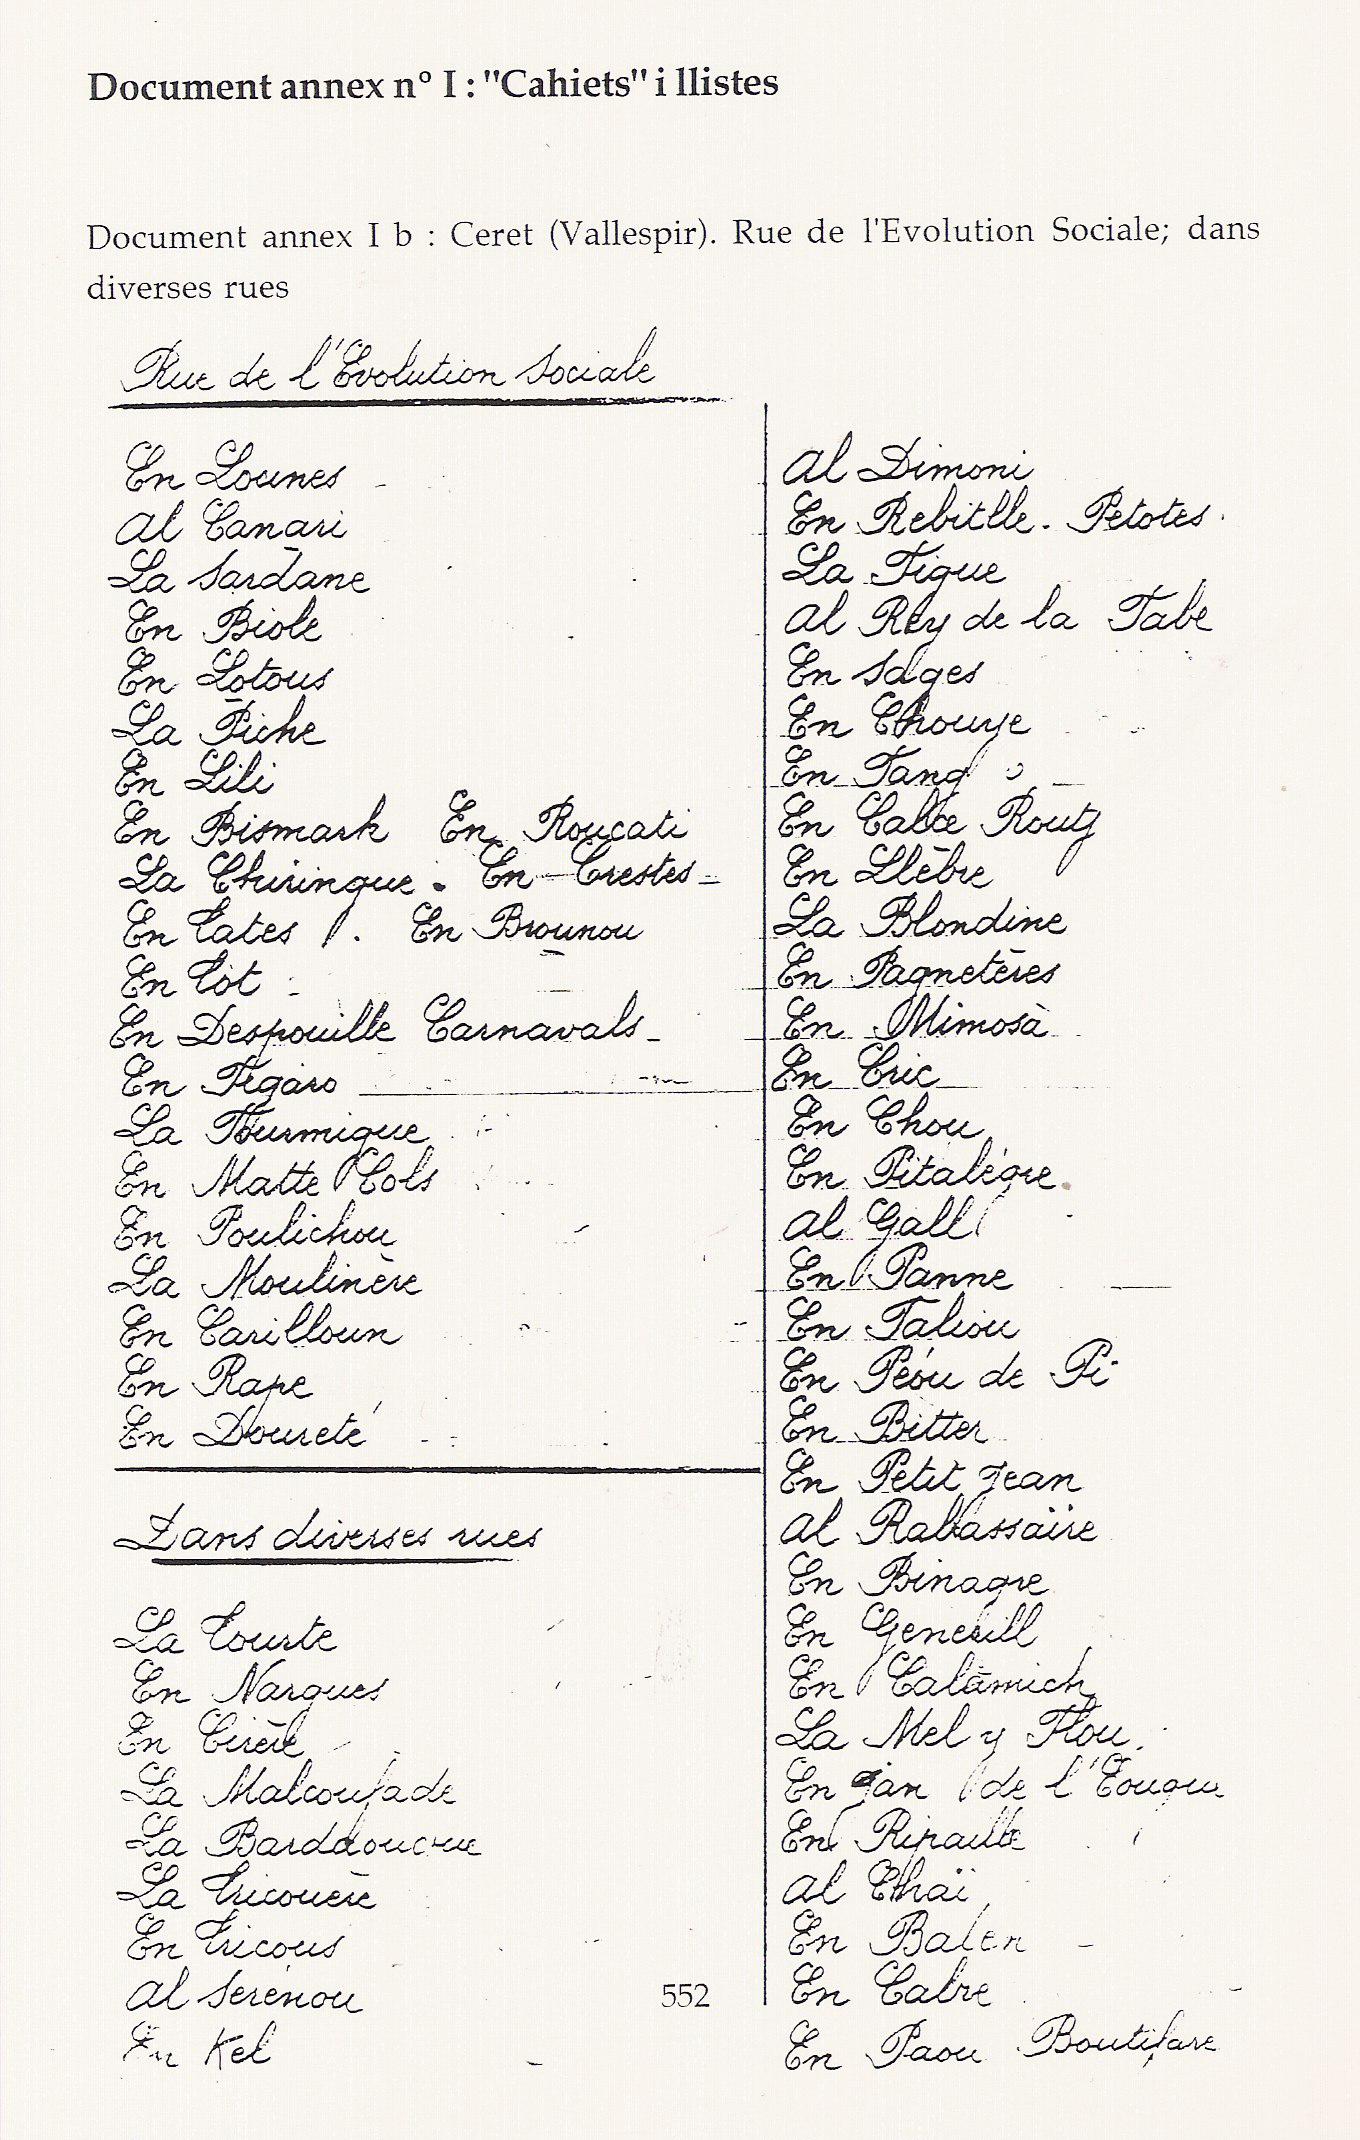 Document annex n° I : "Cahiets" i llistes
Document annex I b : Ceret (Vallespir). Rue de l'Evolution Sociale; dans
diverses rues
Rue de l'Évolution Sociale
En Lounes
Al Canari
La Sardane
En Biole
En Lotous
La Piche
En Lili
En Bismark En Roucati
La Chiringue. En Crestes
En Tates. En Brounou
En Tot
En Despouille Carnavals
En Figaro
La Fourmigue
En Matte Cols
En Poulichou
La Moulinère
En Carilloun
En Rape
En Doureté
Dans diverses rues
La Tourte
En Nargues
En Cirère
La Malcoufade
La
La Tricouère
En Tricous
Al Serenou
En Kel
Al Dimoni
En Rebitlle. Petotes.
La Figue
Al Rey de la Tabe
En Sages
En
En Tang
En Routg
En Llèbre
La Blondine
En Pagnetères
En Mimosà
En Cric
En Chou
En Pitalègre
Al Gall
En Panne
En Taliou
En Pèou de Pi
En Bitter
En Petit Jean
Al Rabassaïre
En Binagre
En Generill
En Calàmich
La Mel y Flou
En Jan de l'Eougue
En Ripaille
Al
En Balen
En Calre
En Paou Boutifare
552